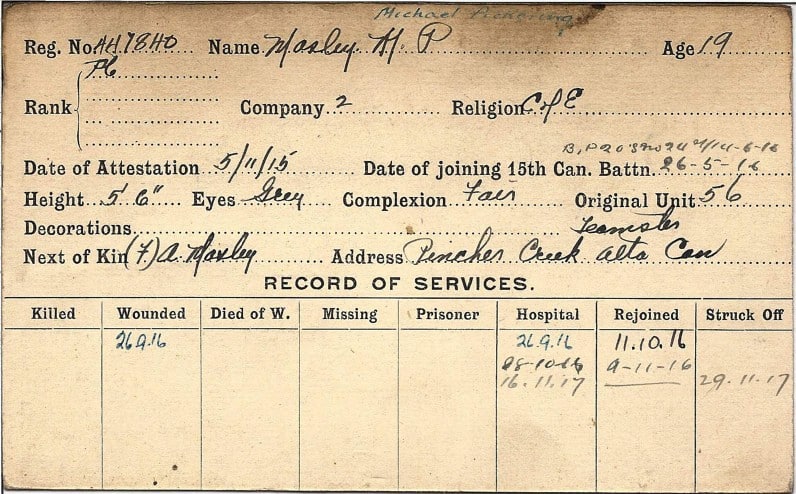 Michael Pickering
Reg. No. A47840 Name Moxley M. P Age 19
Pte
Rank Company 2 Religion C of E
14-6-16
Date of Attestation 5/11/15 Date of joining 15th Can. Battn. 26-5-16
Height 5' 6" Eyes Grey Complexion Fair Original Unit 56
Decorations Teamster
Next of Kin (F.) A. Moxley Address Pincher Creek Alta Can
RECORD OF SERVICES.
Killed Wounded Died of W. Missing Prisoner Hospital Rejoined Struck Off
26.9.16 26.9.16 11.10.16
28-10-16 9-11-16
16.11.17 29.11.17